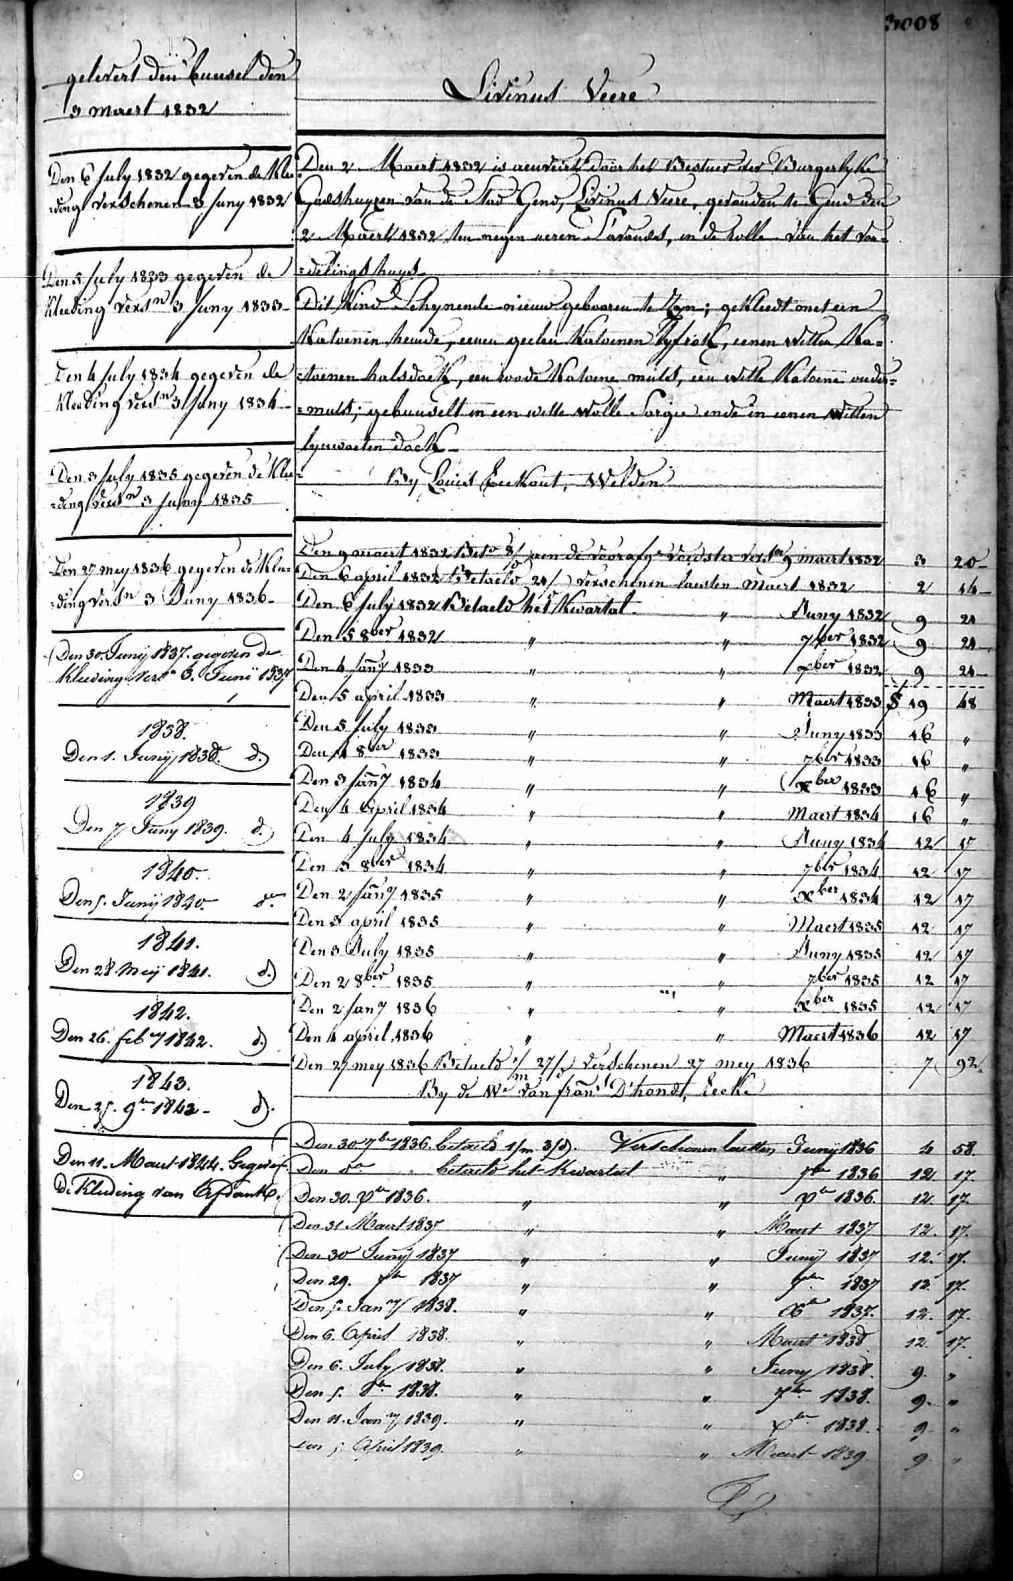 3008
gelevert den bunsel den
3 maert 1832
Livinus Veere
Den 6 July 1832 gegeven de Klee
=ding verschenen 3 Juny 1832
Den 5 July 1833 gegeven de
Kleeding versn 3 Juny 1833
Den 4 July 1834 gegeven de
Kleeding versn 3 Juny 1834
Den 3 July 1835 gegeven de Klee
=ding versn 3 Juny 1835
Den 27 mey 1836 gegeven de Klee=
=ding versn 3 Juny 1836
Den 30. Junij 1837. gegeven de
Kleeding vers 3. Junij 1837
1838.
Den 1. Junij 1838. d.)
1839
Den 7 Juny 1839. d.)
1840.
Den 5. Junij 1840. do
1841.
Den 28 Meij 1841. d.)
1842.
Den 26. feb 1842. d.)
1843.
Den 25. 1842 - d).
Den 11. Maert 1844. Gegeven
De Kleeding van
Den 2 Maert 1832 is aenveird door het Bestuer der Burgerlyke
Godshuyzen van de Stad Gend, Livinus Veere, gevonden te Gend den
2 Maert 1832 ten negen ueren s'avonds, in de rolle van het von=
=delingshuys
Dit Kind schynende nieuw gebooren te zyn; gekleedt met een
Katoenen hemde, eenen geelen Katoenen lyfrok, eenen witten Ka=
=toenen halsdoek, een roode Katoene muts, een witte Katoene onder=
=muts; gebunselt in een witte wolle Sargie ende in eenen Witten
lynwaeten doek
By Louis Eeckaut, Welden
Den 9 maert 1832 aen de voorafge voedster versn 9 maert 1832 3 20
Den 6 april 1832 Betaeld 21/ verschenen laesten Maert 1832 2 14
Den 6 July 1832 Betaeld het Kwartal " Juny 1832 9 24
Den 5 8ber 1832 " " 7ber 1832 9 24
Den 4 Jany 1833 " " xber 1832 9 24
Den 5 april 1833 " " Maert 1833 19 48
Den 5 July 1833 " " Juny 1833 16 "
Den 4 8ber 1833 " " 7ber 1833 16 "
Den 3 Jany 1834 " " xber 1833 16 "
Den 4 April 1834 " " Maert 1834 16 "
Den 4 July 1834 " " Juny 1834 12 17
Den 3 8ber 1834 " " 7ber 1834 12 17
Den 2 Jany 1835 " " xber 1834 12 17
Den 3 april 1835 " " Maert 1835 12 17
Den 3 July 1835 " " Juny 1835 12 17
Den 2 8ber 1835 " " 7ber 1835 12 17
Den 2 Jany 1836 " " xber 1835 12 17
Den 4 april 1836 " " Maert 1836 12 17
Den 27 mey 1836 Betaeld 1/m 27/d verschenen 27 mey 1836 7 92
By de We van frans D'hondt, Eecke
Den 30 7br 1836. betaeld 1/m 3/d. Verschenen laesten Junij 1836 4 58
Den do betaeld het Kwartael " 7br 1836 12 17.
Den 30. xbr 1836. " " xbr 1836. 12. 17.
Den 31 Maert 1837 " " Maert 1837 12. 17.
Den 30 Junij 1837 " " Junij 1837 12. 17.
Den 29. 7br 1837 " " 7br 1837 12. 17.
Den 5. Jany 1838. " " Xbr 1837. 12. 17.
Den 6. April 1838. " " Maert 1838 12. 17.
Den 6. July 1838. " " Juny 1838. 9. "
Den 5. 8br 1838. " " 7br 1838. 9. "
Den 11. Jany 1839. " " Xbr 1838. 9. "
Den 5 April 1839. " " Maert 1839 9 "